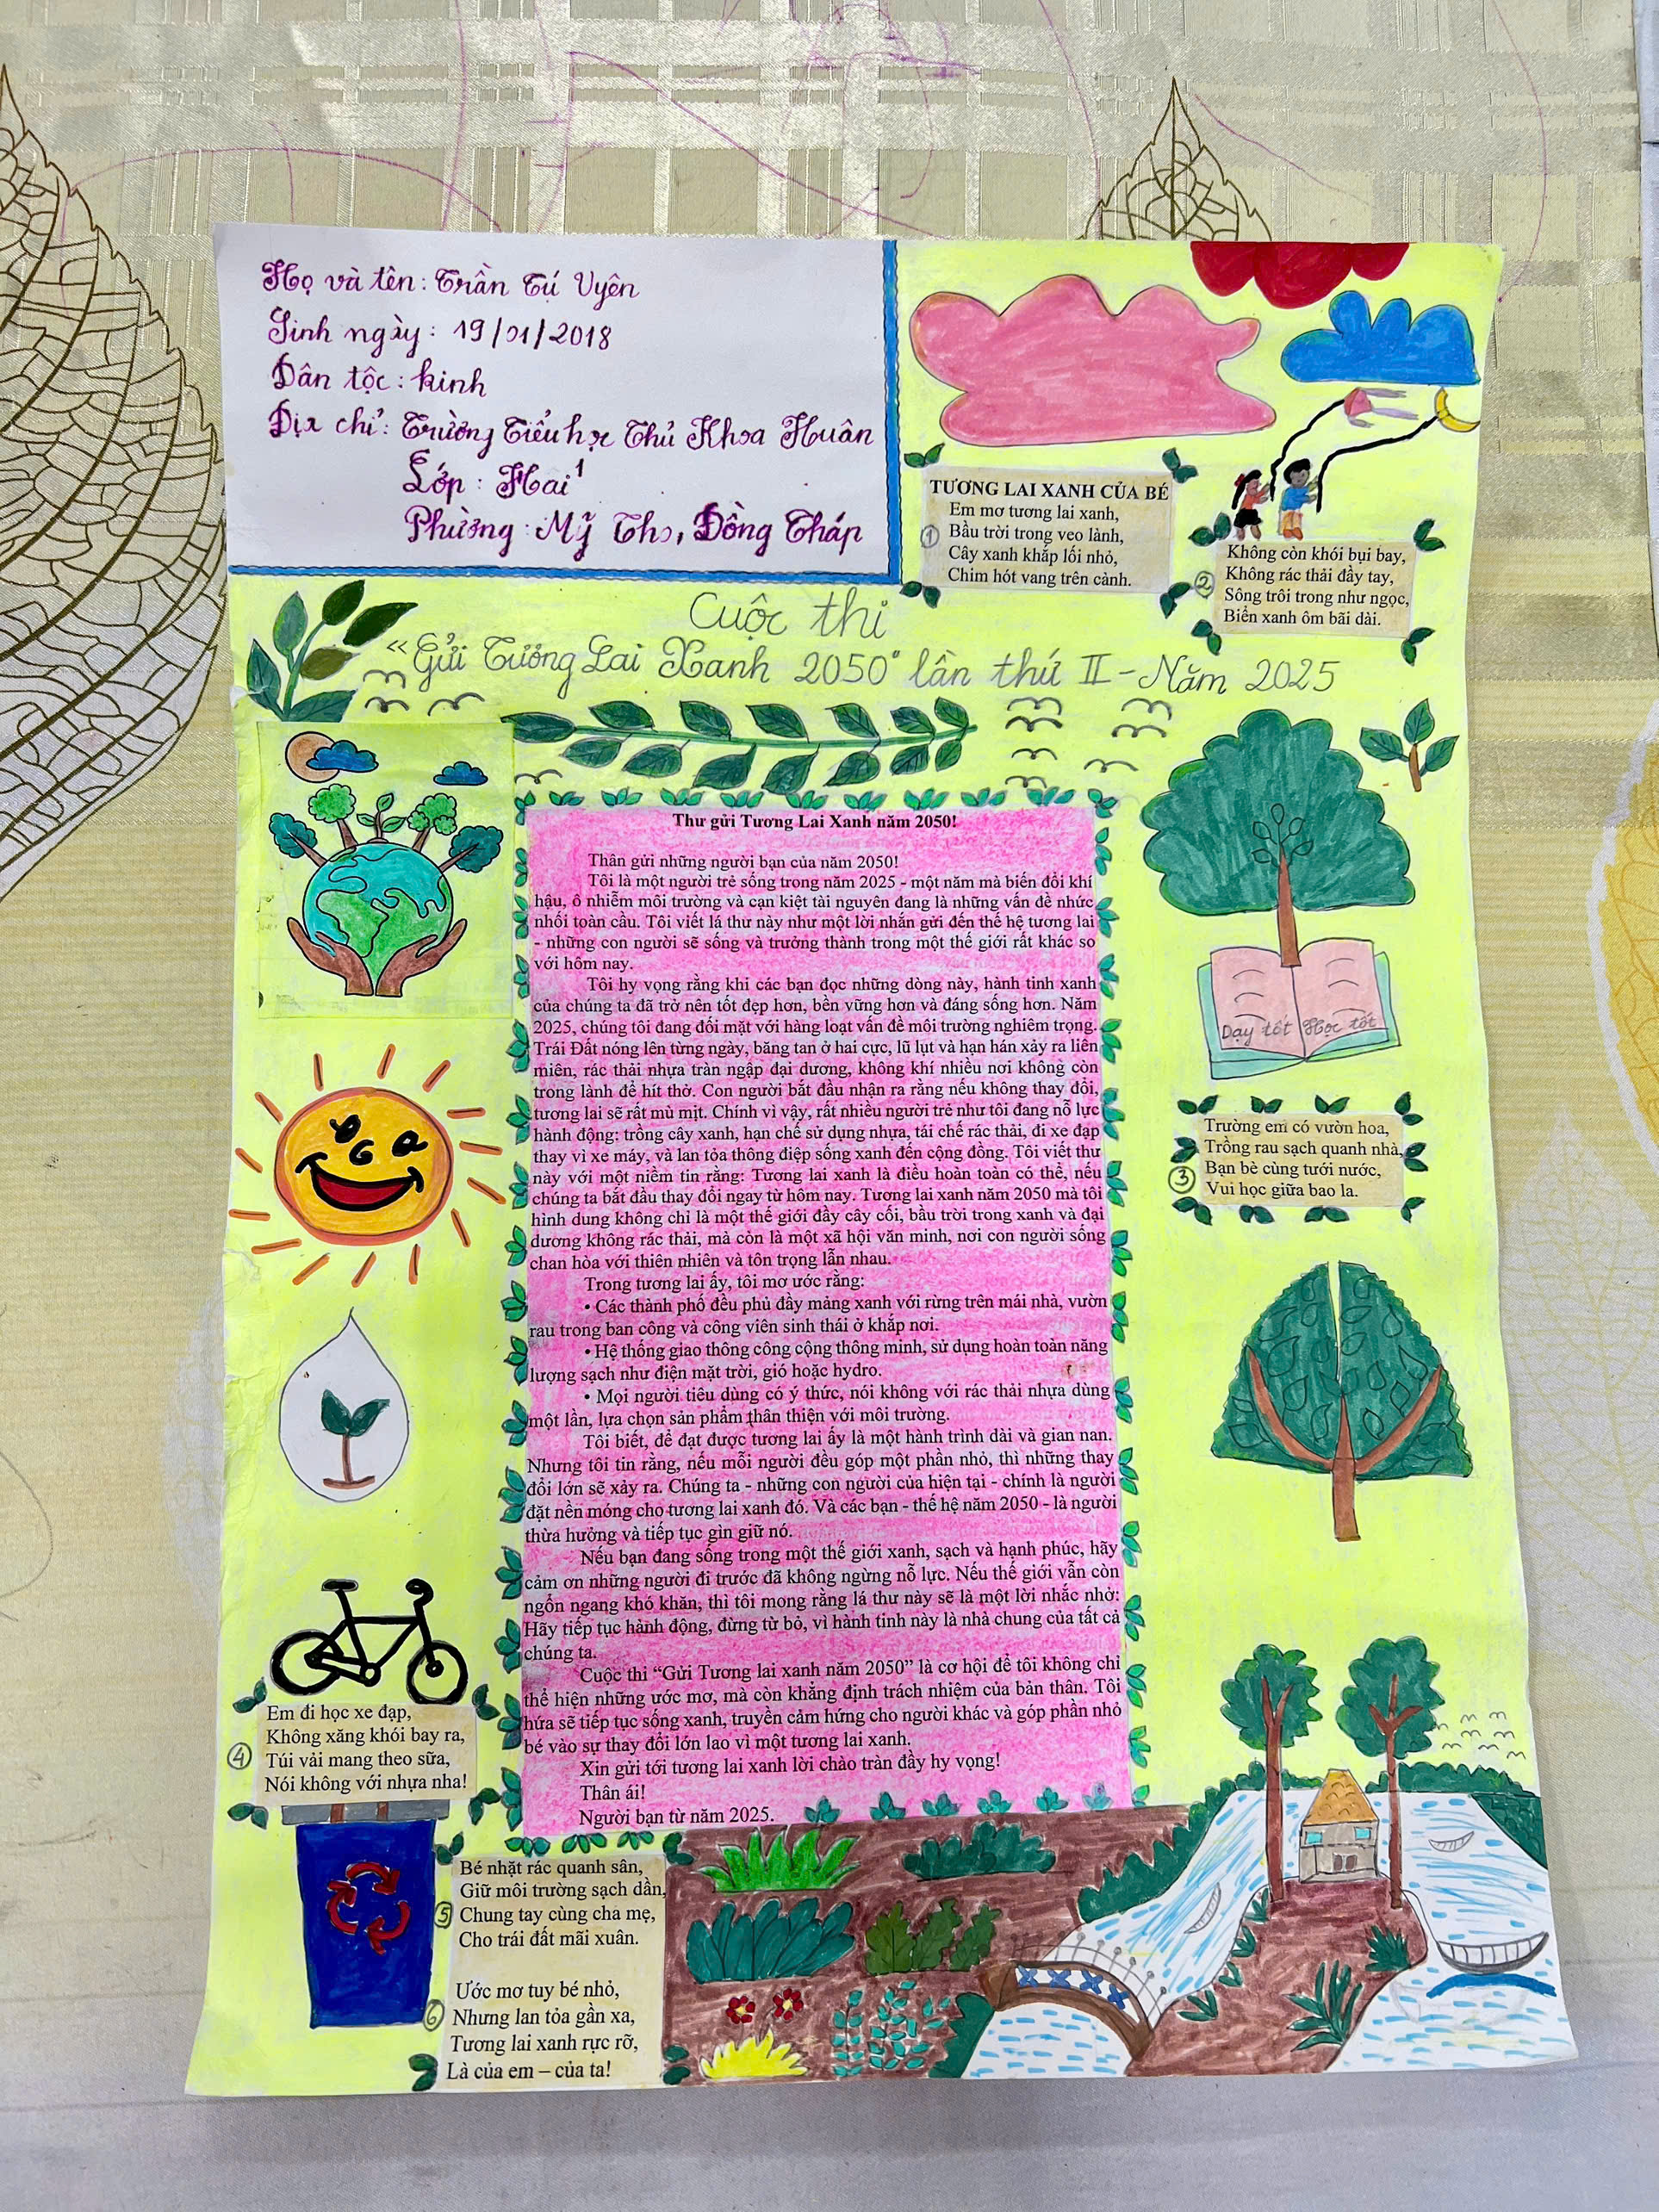 Họ và tên: Trần Tú Uyên
Sinh ngày: 19/01/2018
Dân tộc: kinh
Địa chỉ: Trường Tiểu học Thủ Khoa Huân
Lớp: Hai¹
Phường: Mỹ Tho, Đồng Tháp
TƯƠNG LAI XANH CỦA BÉ
Em mơ tương lai xanh,
1 Bầu trời trong veo lành,
Cây xanh khắp lối nhỏ,
Chim hót vang trên cành.
Không còn khói bụi bay,
2 Không rác thải đầy tay,
Sông trôi trong như ngọc,
Biển xanh ôm bãi dài.
Cuộc thi
"Gửi Tương Lai Xanh 2050" lần thứ II - Năm 2025
Thư gửi Tương Lai Xanh năm 2050!
Thân gửi những người bạn của năm 2050!
Tôi là một người trẻ sống trong năm 2025 - một năm mà biến đổi khí
hậu, ô nhiễm môi trường và cạn kiệt tài nguyên đang là những vấn đề nhức
nhối toàn cầu. Tôi viết lá thư này như một lời nhắn gửi đến thế hệ tương lai
- những con người sẽ sống và trưởng thành trong một thế giới rất khác so
với hôm nay.
Tôi hy vọng rằng khi các bạn đọc những dòng này, hành tinh xanh
của chúng ta đã trở nên tốt đẹp hơn, bền vững hơn và đáng sống hơn. Năm
2025, chúng tôi đang đối mặt với hàng loạt vấn đề môi trường nghiêm trọng.
Trái Đất nóng lên từng ngày, băng tan ở hai cực, lũ lụt và hạn hán xảy ra liên
miên, rác thải nhựa tràn ngập đại dương, không khí nhiều nơi không còn
trong lành để hít thở. Con người bắt đầu nhận ra rằng nếu không thay đổi,
tương lai sẽ rất mù mịt. Chính vì vậy, rất nhiều người trẻ như tôi đang nỗ lực
hành động: trồng cây xanh, hạn chế sử dụng nhựa, tái chế rác thải, đi xe đạp
thay vì xe máy, và lan tỏa thông điệp sống xanh đến cộng đồng. Tôi viết thư
này với một niềm tin rằng: Tương lai xanh là điều hoàn toàn có thể, nếu
chúng ta bắt đầu thay đổi ngay từ hôm nay. Tương lai xanh năm 2050 mà tôi
hình dung không chỉ là một thế giới đầy cây cối, bầu trời trong xanh và đại
dương không rác thải, mà còn là một xã hội văn minh, nơi con người sống
chan hòa với thiên nhiên và tôn trọng lẫn nhau.
Trong tương lai ấy, tôi mơ ước rằng:
• Các thành phố đều phủ đầy mảng xanh với rừng trên mái nhà, vườn
rau trong ban công và công viên sinh thái ở khắp nơi.
• Hệ thống giao thông công cộng thông minh, sử dụng hoàn toàn năng
lượng sạch như điện mặt trời, gió hoặc hydro.
• Mọi người tiêu dùng có ý thức, nói không với rác thải nhựa dùng
một lần, lựa chọn sản phẩm thân thiện với môi trường.
Tôi biết, để đạt được tương lai ấy là một hành trình dài và gian nan.
Nhưng tôi tin rằng, nếu mỗi người đều góp một phần nhỏ, thì những thay
đổi lớn sẽ xảy ra. Chúng ta - những con người của hiện tại - chính là người
đặt nền móng cho tương lai xanh đó. Và các bạn - thế hệ năm 2050 - là người
thừa hưởng và tiếp tục gìn giữ nó.
Nếu bạn đang sống trong một thế giới xanh, sạch và hạnh phúc, hãy
cảm ơn những người đi trước đã không ngừng nỗ lực. Nếu thế giới vẫn còn
ngổn ngang khó khăn, thì tôi mong rằng lá thư này sẽ là một lời nhắc nhở:
Hãy tiếp tục hành động, đừng từ bỏ, vì hành tinh này là nhà chung của tất cả
chúng ta.
Cuộc thi “Gửi Tương lai xanh năm 2050” là cơ hội để tôi không chỉ
thể hiện những ước mơ, mà còn khẳng định trách nhiệm của bản thân. Tôi
hứa sẽ tiếp tục sống xanh, truyền cảm hứng cho người khác và góp phần nhỏ
bé vào sự thay đổi lớn lao vì một tương lai xanh.
Xin gửi tới tương lai xanh lời chào tràn đầy hy vọng!
Thân ái!
Người bạn từ năm 2025.
Dạy tốt Học tốt
Trường em có vườn hoa,
Trồng rau sạch quanh nhà,
3 Bạn bè cùng tưới nước,
Vui học giữa bao la.
Em đi học xe đạp,
Không xăng khói bay ra,
4 Túi vải mang theo sữa,
Nói không với nhựa nha!
Bé nhặt rác quanh sân,
Giữ môi trường sạch dần,
5 Chung tay cùng cha mẹ,
Cho trái đất mãi xuân.
Ước mơ tuy bé nhỏ,
6 Nhưng lan tỏa gần xa,
Tương lai xanh rực rỡ,
Là của em – của ta!